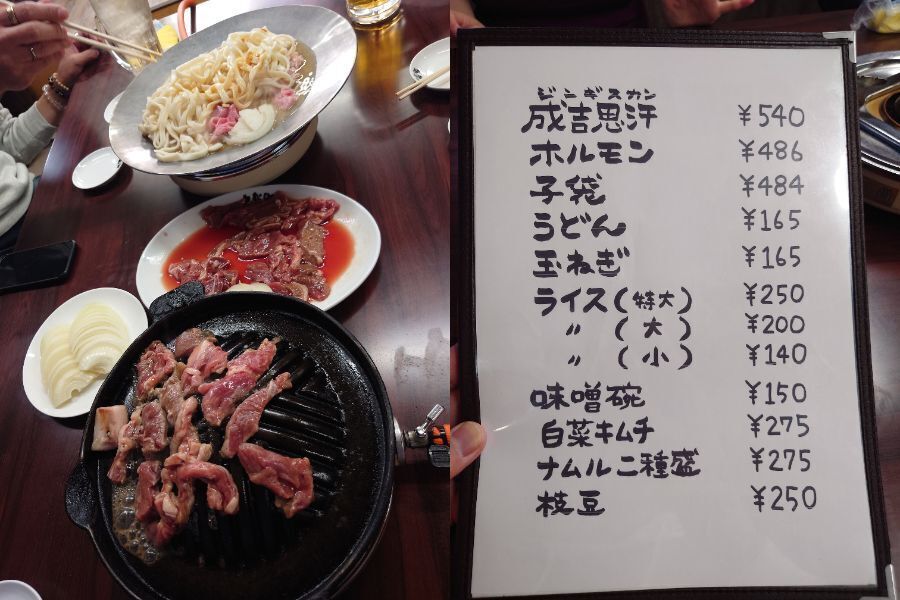 ジンギスカン
成吉思汗 ¥540
ホルモン ¥486
子袋 ¥484
うどん ¥165
玉ねぎ ¥165
ライス(特大) ¥250
〃 (大) ¥200
〃 (小) ¥140
味噌碗 ¥150
白菜キムチ ¥275
ナムル二種盛 ¥275
枝豆 ¥250